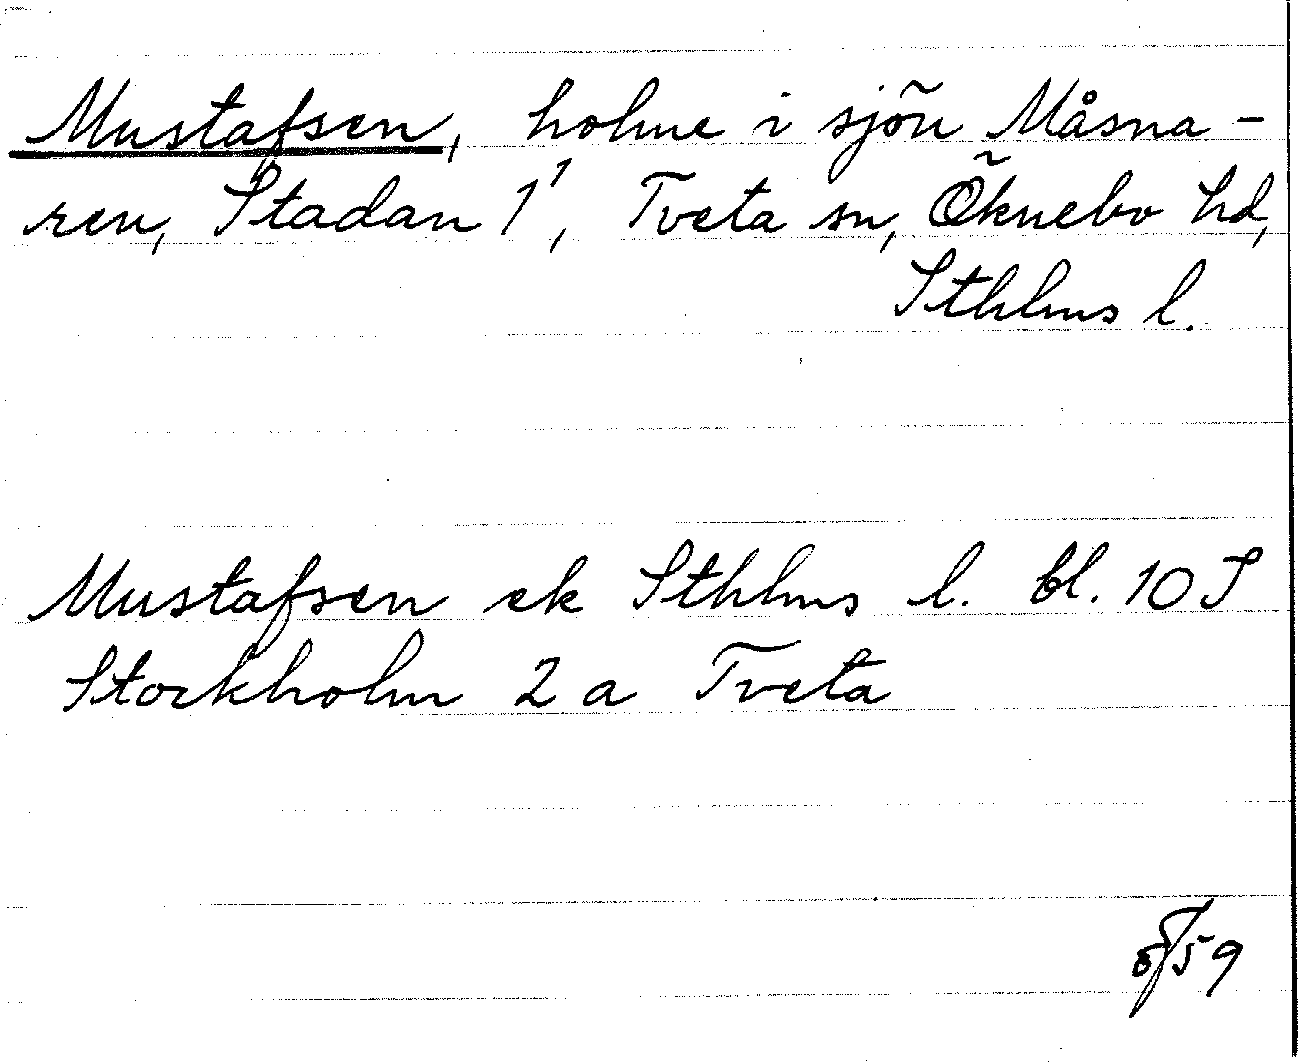 Mustafsen, holme i sjön Måsna-
ren, Stadan 1¹, Tveta sn, Öknebo hd,
Sthlms l.
Mustafsen ek Sthlms l. bl. 10 S
Stockholm 2a Tveta
/59